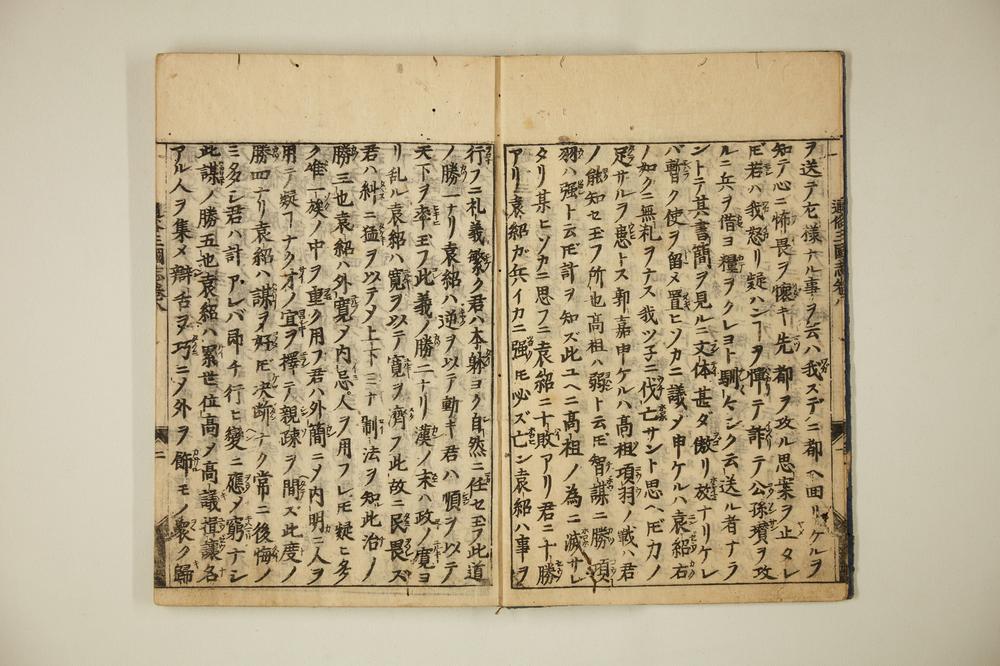 ヲ送テ左様ナル事ヲ云ハ我スデニ都ヘ回リケルヲ
知テ心ニ怖畏ヲ懷キ先都ヲ攻ル思案ヲ止タレ
𪜈若ハ我怒リ疑ハンヿヲ憚リテ詐テ公孫瓚ヲ攻
ルニ兵ヲ借ヨ糧ヲクレヨト馴〻シク云送ル者ナラ
ントテ其書簡ヲ見ルニ文体甚ダ傲リ放ナリケレ
バ暫ク使ヲ留メ置ヒソカニ議〆申ケルハ袁紹右
ノ如クニ無礼ヲナス我ツ子ニ伐亡サント思ヘ𪜈力ノ
足サルヲ患トス郭嘉申ケルハ高祖項羽ノ戰ハ君
ノ能知セ玉フ所也高祖ハ弱ト云𪜈智謀ニ勝項
羽ハ强ト云𪜈計ヲ知ズ此ユヘニ高祖ノ為ニ滅サレ
タリ某ヒソカニ思フニ袁紹ニ十敗アリ君ニ十勝
アリ袁紹ガ兵イカニ强𪜈必ズ亡ン袁紹ハ事ヲ
通俗三國志卷八
行フニ礼義繁ク君ハ本躰ヨク自然ニ任セ玉フ此道
ノ勝一ナリ袁紹ハ逆ヲ以テ動キ君ハ順ヲ以テ
天下ヲ率玉フ此義ノ勝二ナリ漢ノ末ハ政ノ寛ヨ
リ乱ル袁紹ハ寛ヲ以テ寛ヲ濟フ此故ニ民畏ズ
君ハ糾ニ猛ヲ以テ〆上下ミナ制法ヲ知此治ノ
勝三也袁紹ハ外寛〆内忌人ヲ用フレ𪜈疑ヒ多
ク惟一族ノ中ヲ重ク用フ君ハ外簡ニ〆内明ニ人ヲ
用テ疑フヿナク才ノ宜ヲ擇テ親疎ヲ間ズ此度ノ
勝四ナリ袁紹ハ謀ヲ好𪜈决斷ナク常ニ後悔ノ
ミ多シ君ハ計アレバ即チ行ヒ變ニ應〆窮ナシ
此謀ノ勝五也袁紹ハ累世位高〆高議揖讓名
アル人ヲ集メ辯舌ヲ巧ニ〆外ヲ飾モノ衆ク歸